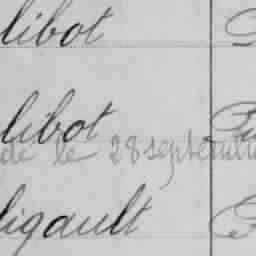 libot
libot
de le 28 septembre
ligault